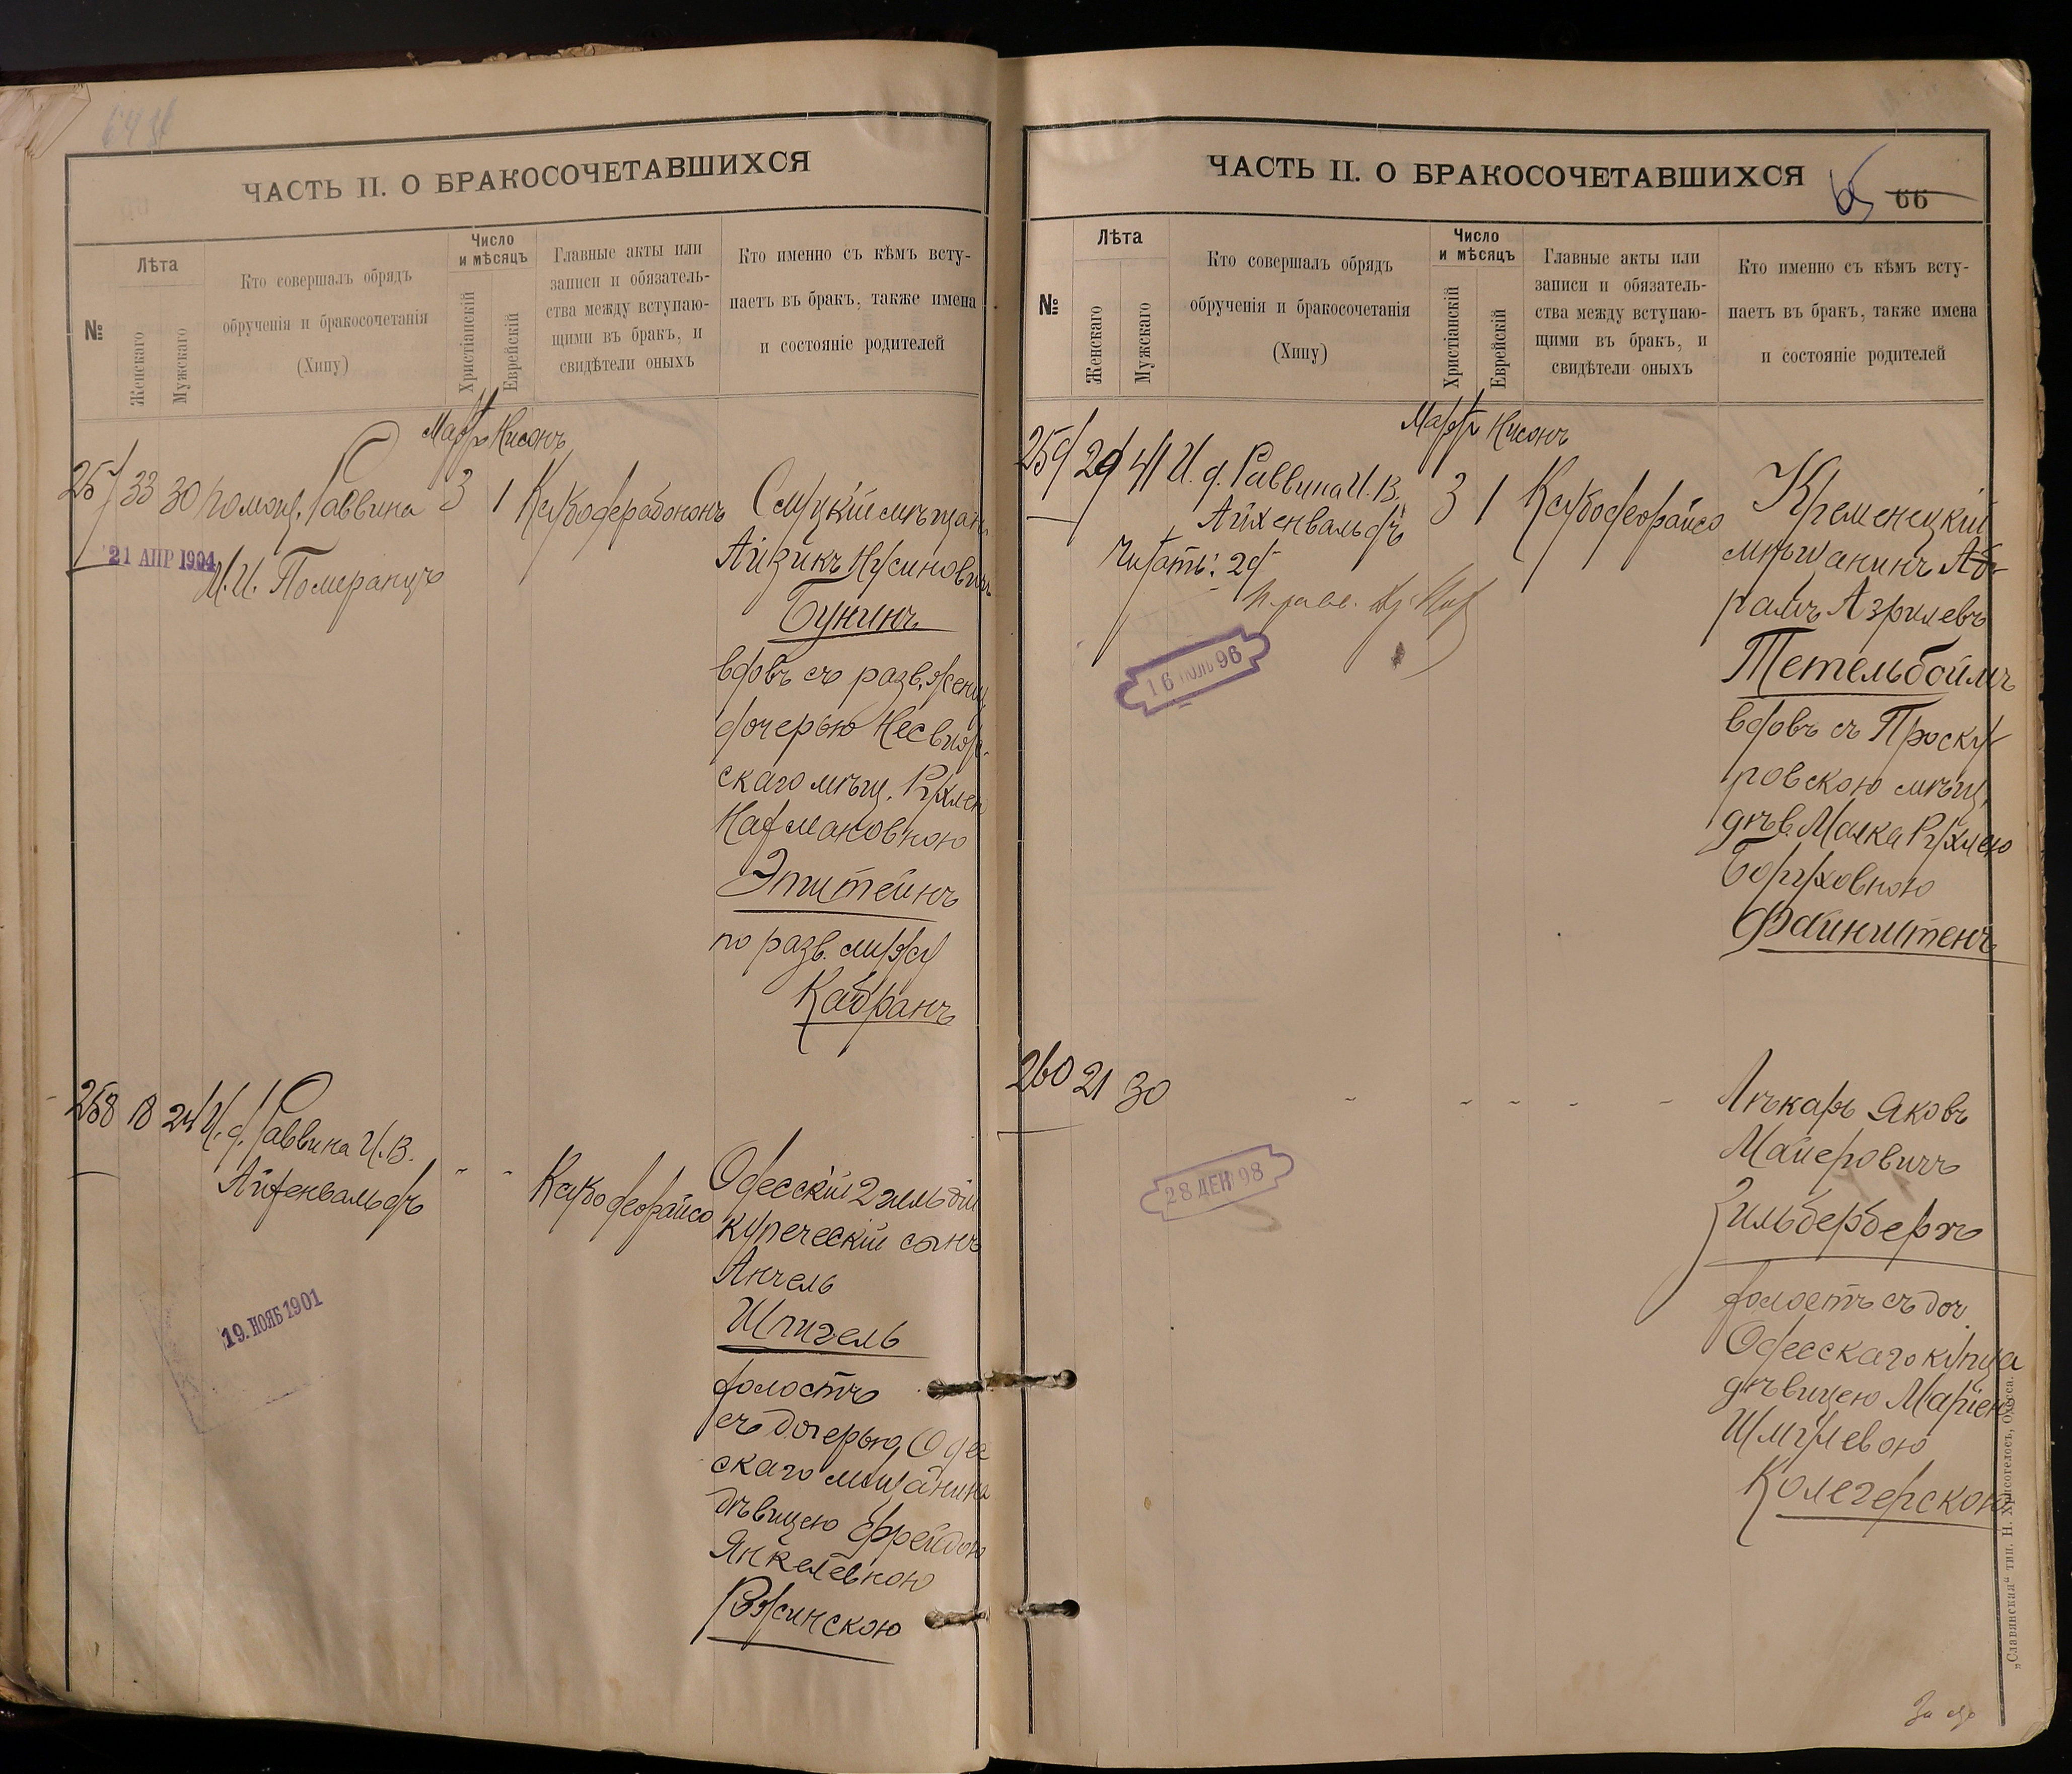 ЧАСТЬ II. О БРАКОСОЧЕТАВШИХСЯ
№
Лѣта
Женскаго
Мужскаго
Кто совершалъ обрядъ
обрученія и бракосочетанія
(Хипу)
Число
и мѣсяцъ
Христіанскій
Еврейскій
Главные акты или
записи и обязатель-
ства между вступаю-
щими въ бракъ, и
свидѣтели оныхъ
Кто именно съ кѣмъ всту-
паетъ въ бракъ, также имена
и состояніе родителей
Мартъ Нисонъ
257 33 30 помощ. Раввина 3 1
21 АПР 1904
И.И. Померанцъ
Слуцкій мѣщан.
Айзикъ Нусиновичъ
Бунинъ
вдовъ съ разв. жен.
дочерью
скаго мѣщ. Рухлею
Нахмановною
Эпштейнъ
по разв. мужу
Кабранъ
258 18 24 И. д. Раввина И. В.
Айхенвальдъ
19. НОЯБ 1901
Одесскій 2 гильдіи
купеческій сынъ
Анчель
Шпигель
холостъ
съ дочерью Одес
скаго мѣщанина
дѣвицею Фрейдою
Янкелевною
Ружинскою
ЧАСТЬ II. О БРАКОСОЧЕТАВШИХСЯ
65 66
№
Лѣта
Женскаго
Мужскаго
Кто совершалъ обрядъ
обрученія и бракосочетанія
(Хипу)
Число
и мѣсяцъ
Христіанскій
Еврейскій
Главные акты или
записи и обязатель-
ства между вступаю-
щими въ бракъ, и
свидѣтели оныхъ
Кто именно съ кѣмъ всту-
паетъ въ бракъ, также имена
и состояніе родителей
Мартъ Нисонъ
259 29 41 И. д. Раввина И. В. 3 1
Айхенвальдъ
Читать: 29
16 ІЮЛЬ 96
Кременецкій
мѣщанинъ Аб-
рамъ Азрилевъ
Тетельбоймъ
вдовъ съ Проску-
ровскою мѣщ.
дѣв. Малка Рухлею
Боруховною
Файнштенъ
260 21 30
28 ДЕК 98
Лѣкарь Яковъ
Маеровичъ
Зильбербергъ
холостъ съ доч.
Одесскаго купца
дѣвицею Маріею
Шмулевою
Колегерскою
„Славянская“ тип. Н. Хрисогелосъ, Одесса.